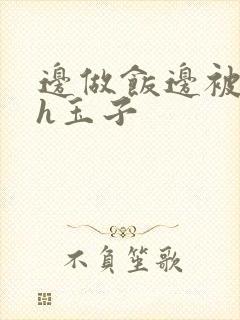 邊做飯邊被
h玉子
不負笙歌